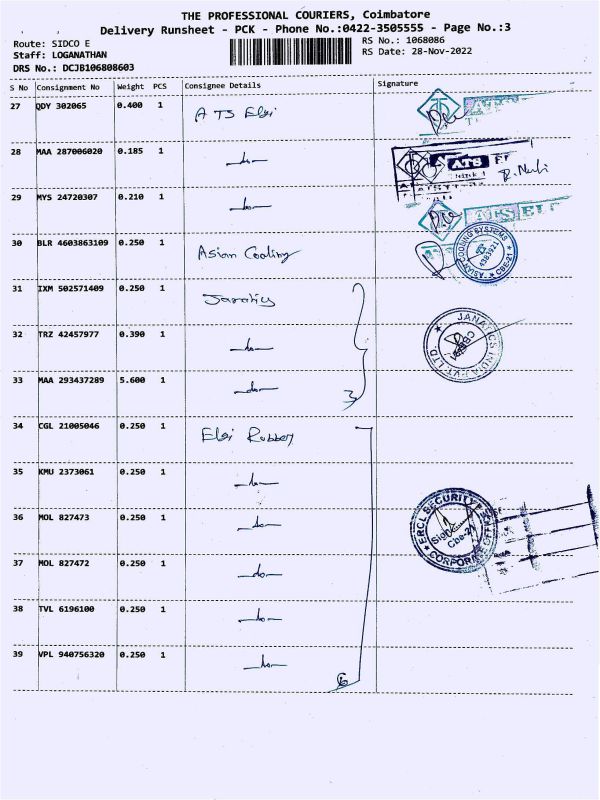 THE PROFESSIONAL COURIERS, Coimbatore
Delivery Runsheet - PCK - Phone No.:0422-3505555 - Page No.:3
Route: SIDCO E
Staff: LOGANATHAN
DRS No.: DCJB106808603
RS No.: 1068086
RS Date: 28-Nov-2022
S No Consignment No Weight PCS Consignee Details Signature
27 QDY 302065 0.400 1 ATS Elgi ATS
28 MAA 287006020 0.185 1 -do- ATS
29 MYS 24720307 0.210 1 -do- ATS ELG
30 BLR 4603863109 0.250 1 Asian Cooling COOLING SYSTEMS CBE-21
31 IXM 502571409 0.250 1 Janatics
32 TRZ 42457977 0.390 1 -do- JANATICS INDIA PVT. LTD. CBE-21
33 MAA 293437289 5.600 1 -do- 3
34 CGL 21005046 0.250 1 Elgi Rubber
35 KMU 2373061 0.250 1 -do-
36 MOL 827473 0.250 1 -do- ERCL SECURITY Sign Cbe-21 CORPORATE OFFICE
37 MOL 827472 0.250 1 -do-
38 TVL 6196100 0.250 1 -do-
39 VPL 940756320 0.250 1 -do- 6